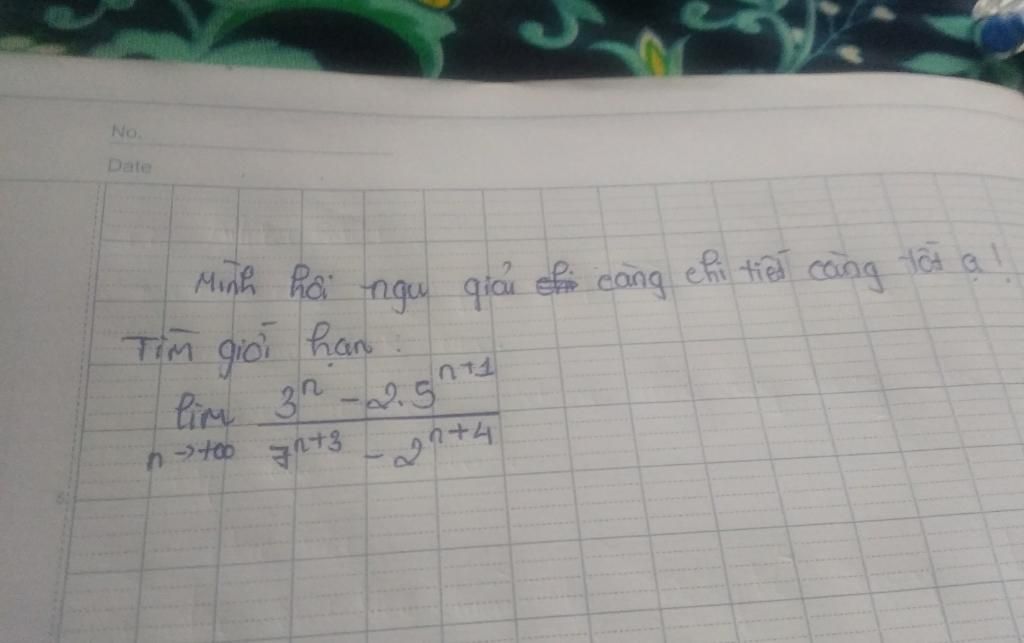 No.
Date
Mình hơi ngu giải chi càng chi tiết càng tốt ạ!
Tìm giới hạn:
lim 3^n - 2.5^{n+1}
n→+∞ 7^{n+3} - 2^{n+4}